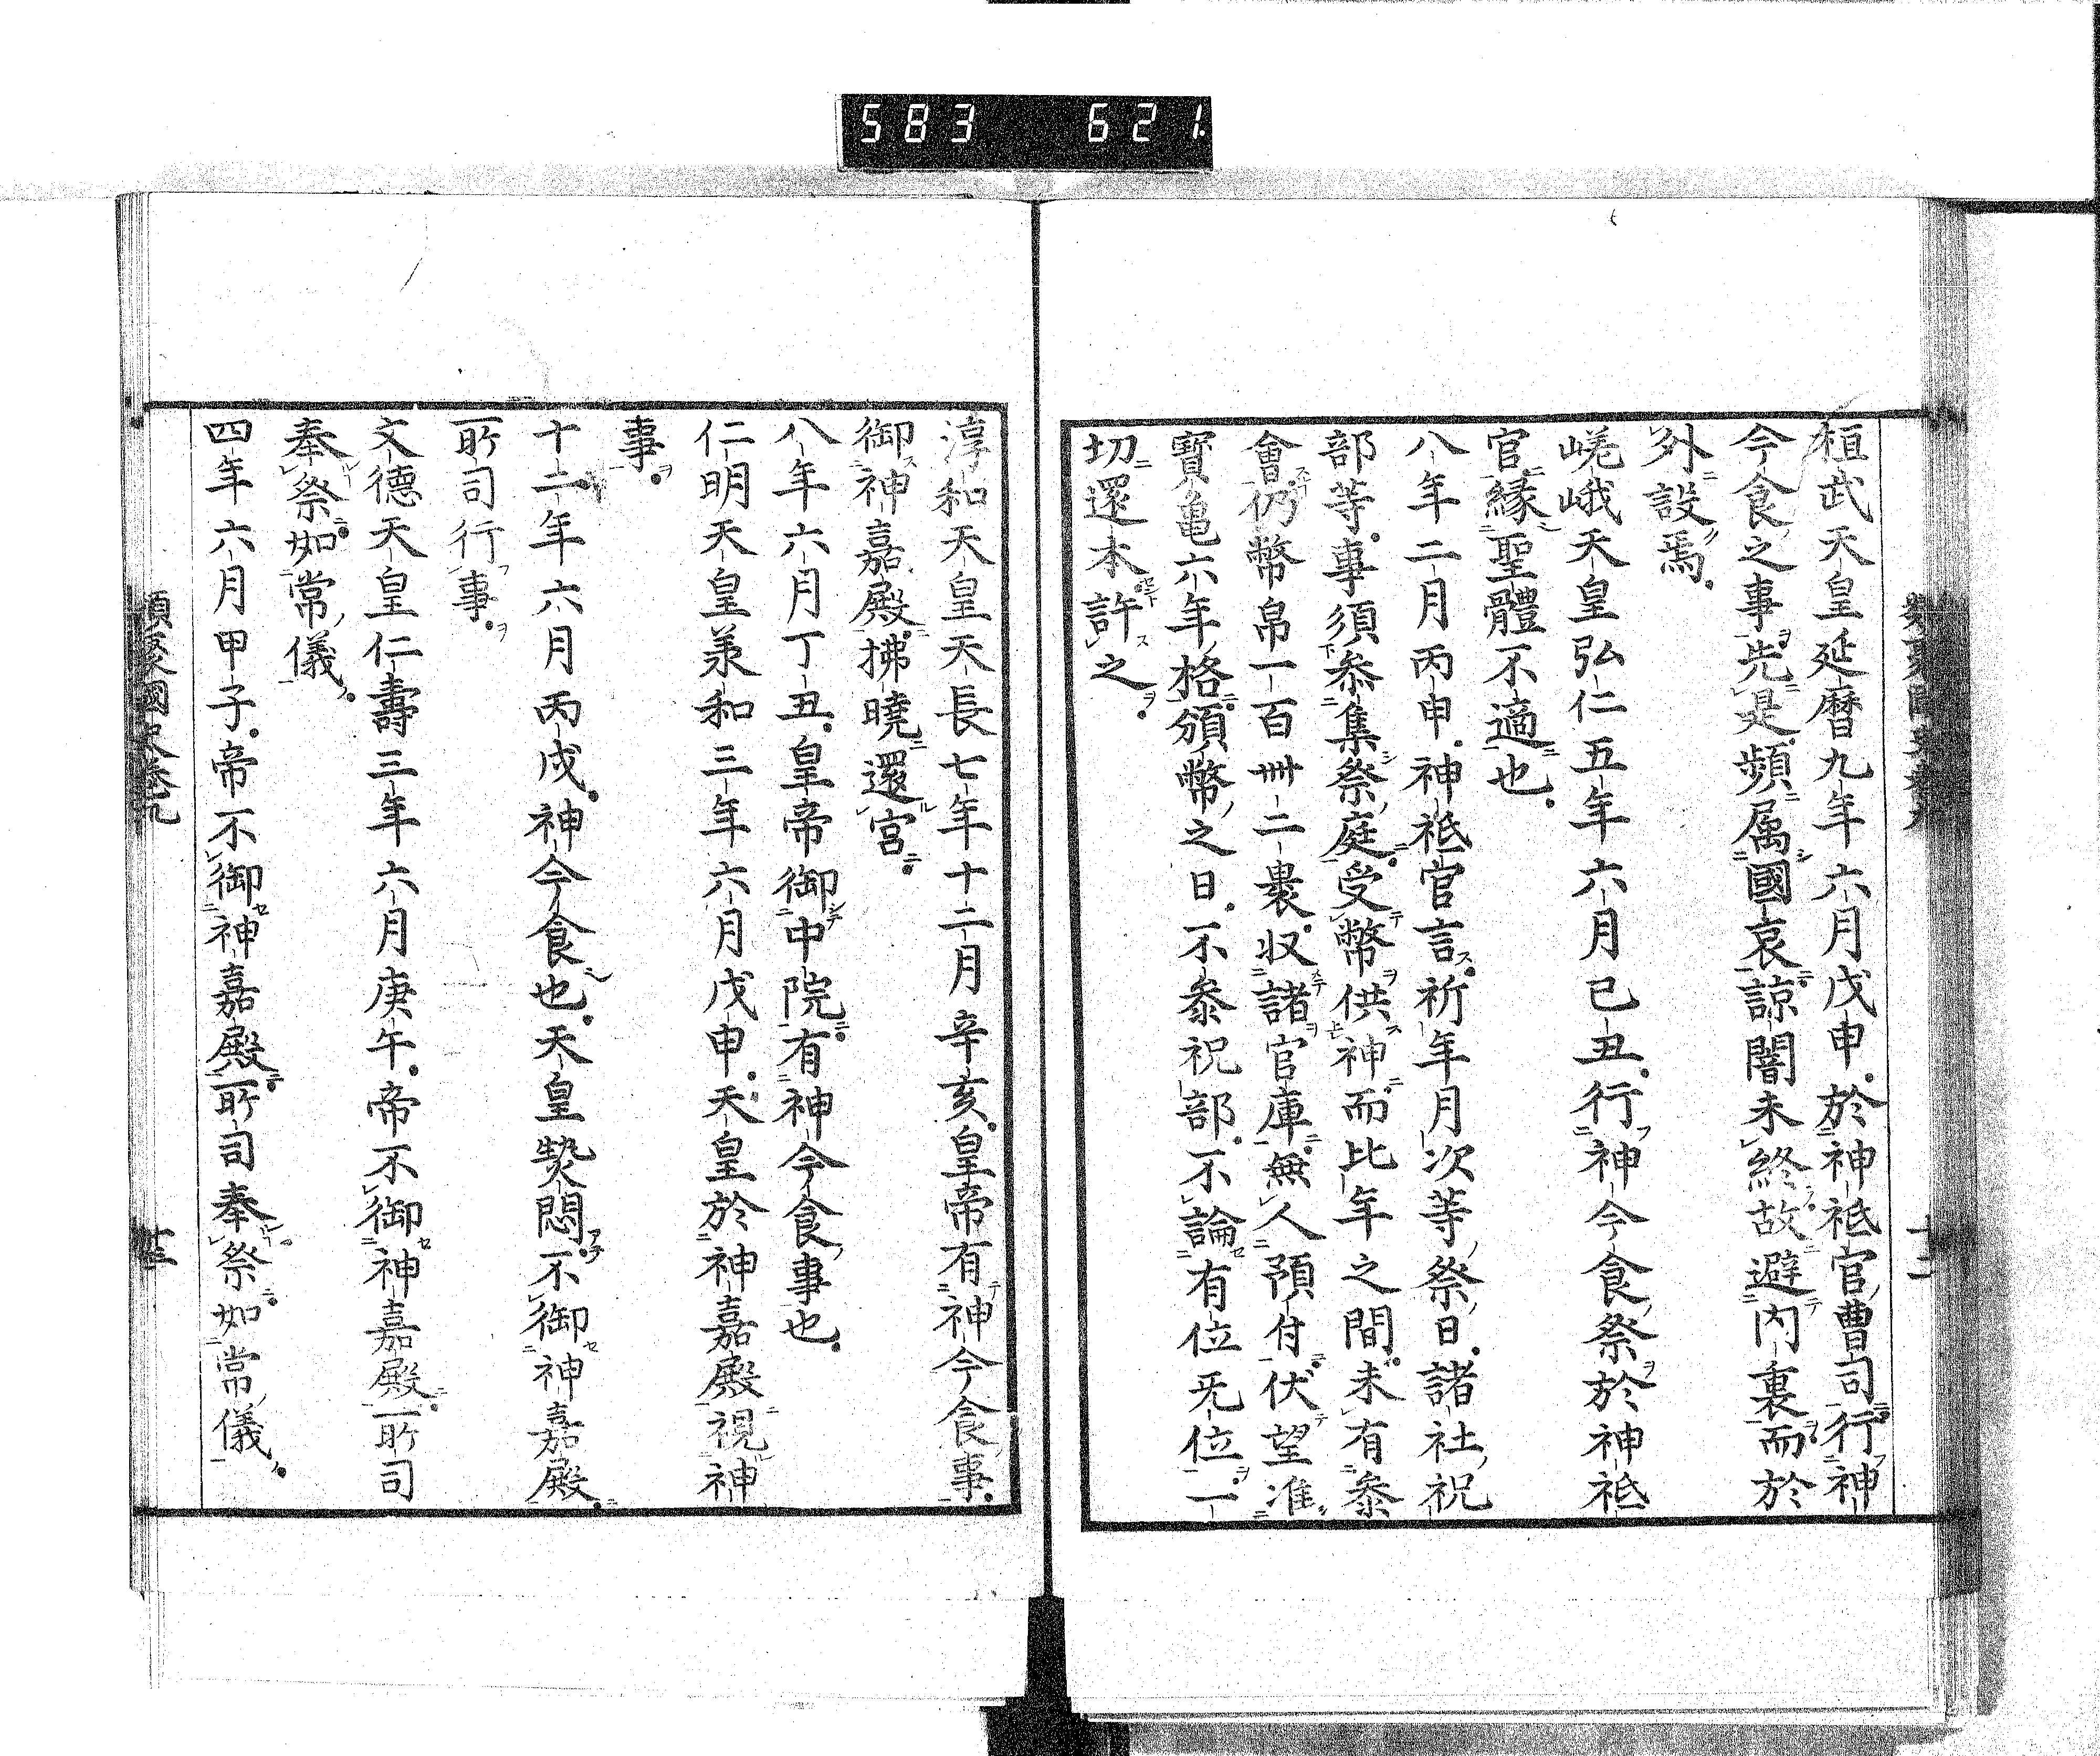 583 621.
桓武天皇延曆九年六月戊申於神祗官曹司行神
今食之事先是頻属國哀諒闇未終故避内裏而於
外設焉
嵯峨天皇弘仁五年六月己丑行神今食祭於神祗
官緣聖體不適也
八年二月丙申神祗官言祈年月次等祭日諸社祝
部等事須叅集祭庭受幣供神而比年之間未有叅
會仍幣帛一百卌二褁収諸官庫無人預付伏望准
寳亀六年格頒幣之日不叅祝部不論有位旡位一
切還本許之
淳和天皇天長七年十二月辛亥皇帝有神今食事
御神嘉殿拂曉還宮
八年六月丁丑皇帝御中院有神今食事也
仁明天皇羕和三年六月戊申天皇於神嘉殿視神
事
十二年六月丙戌神今食也天皇㷱悶不御神嘉殿
所司行事
文德天皇仁壽三年六月庚午帝不御神嘉殿所司
奉祭如常儀
四年六月甲子帝不御神嘉殿所司奉祭如常儀
類聚國史卷九